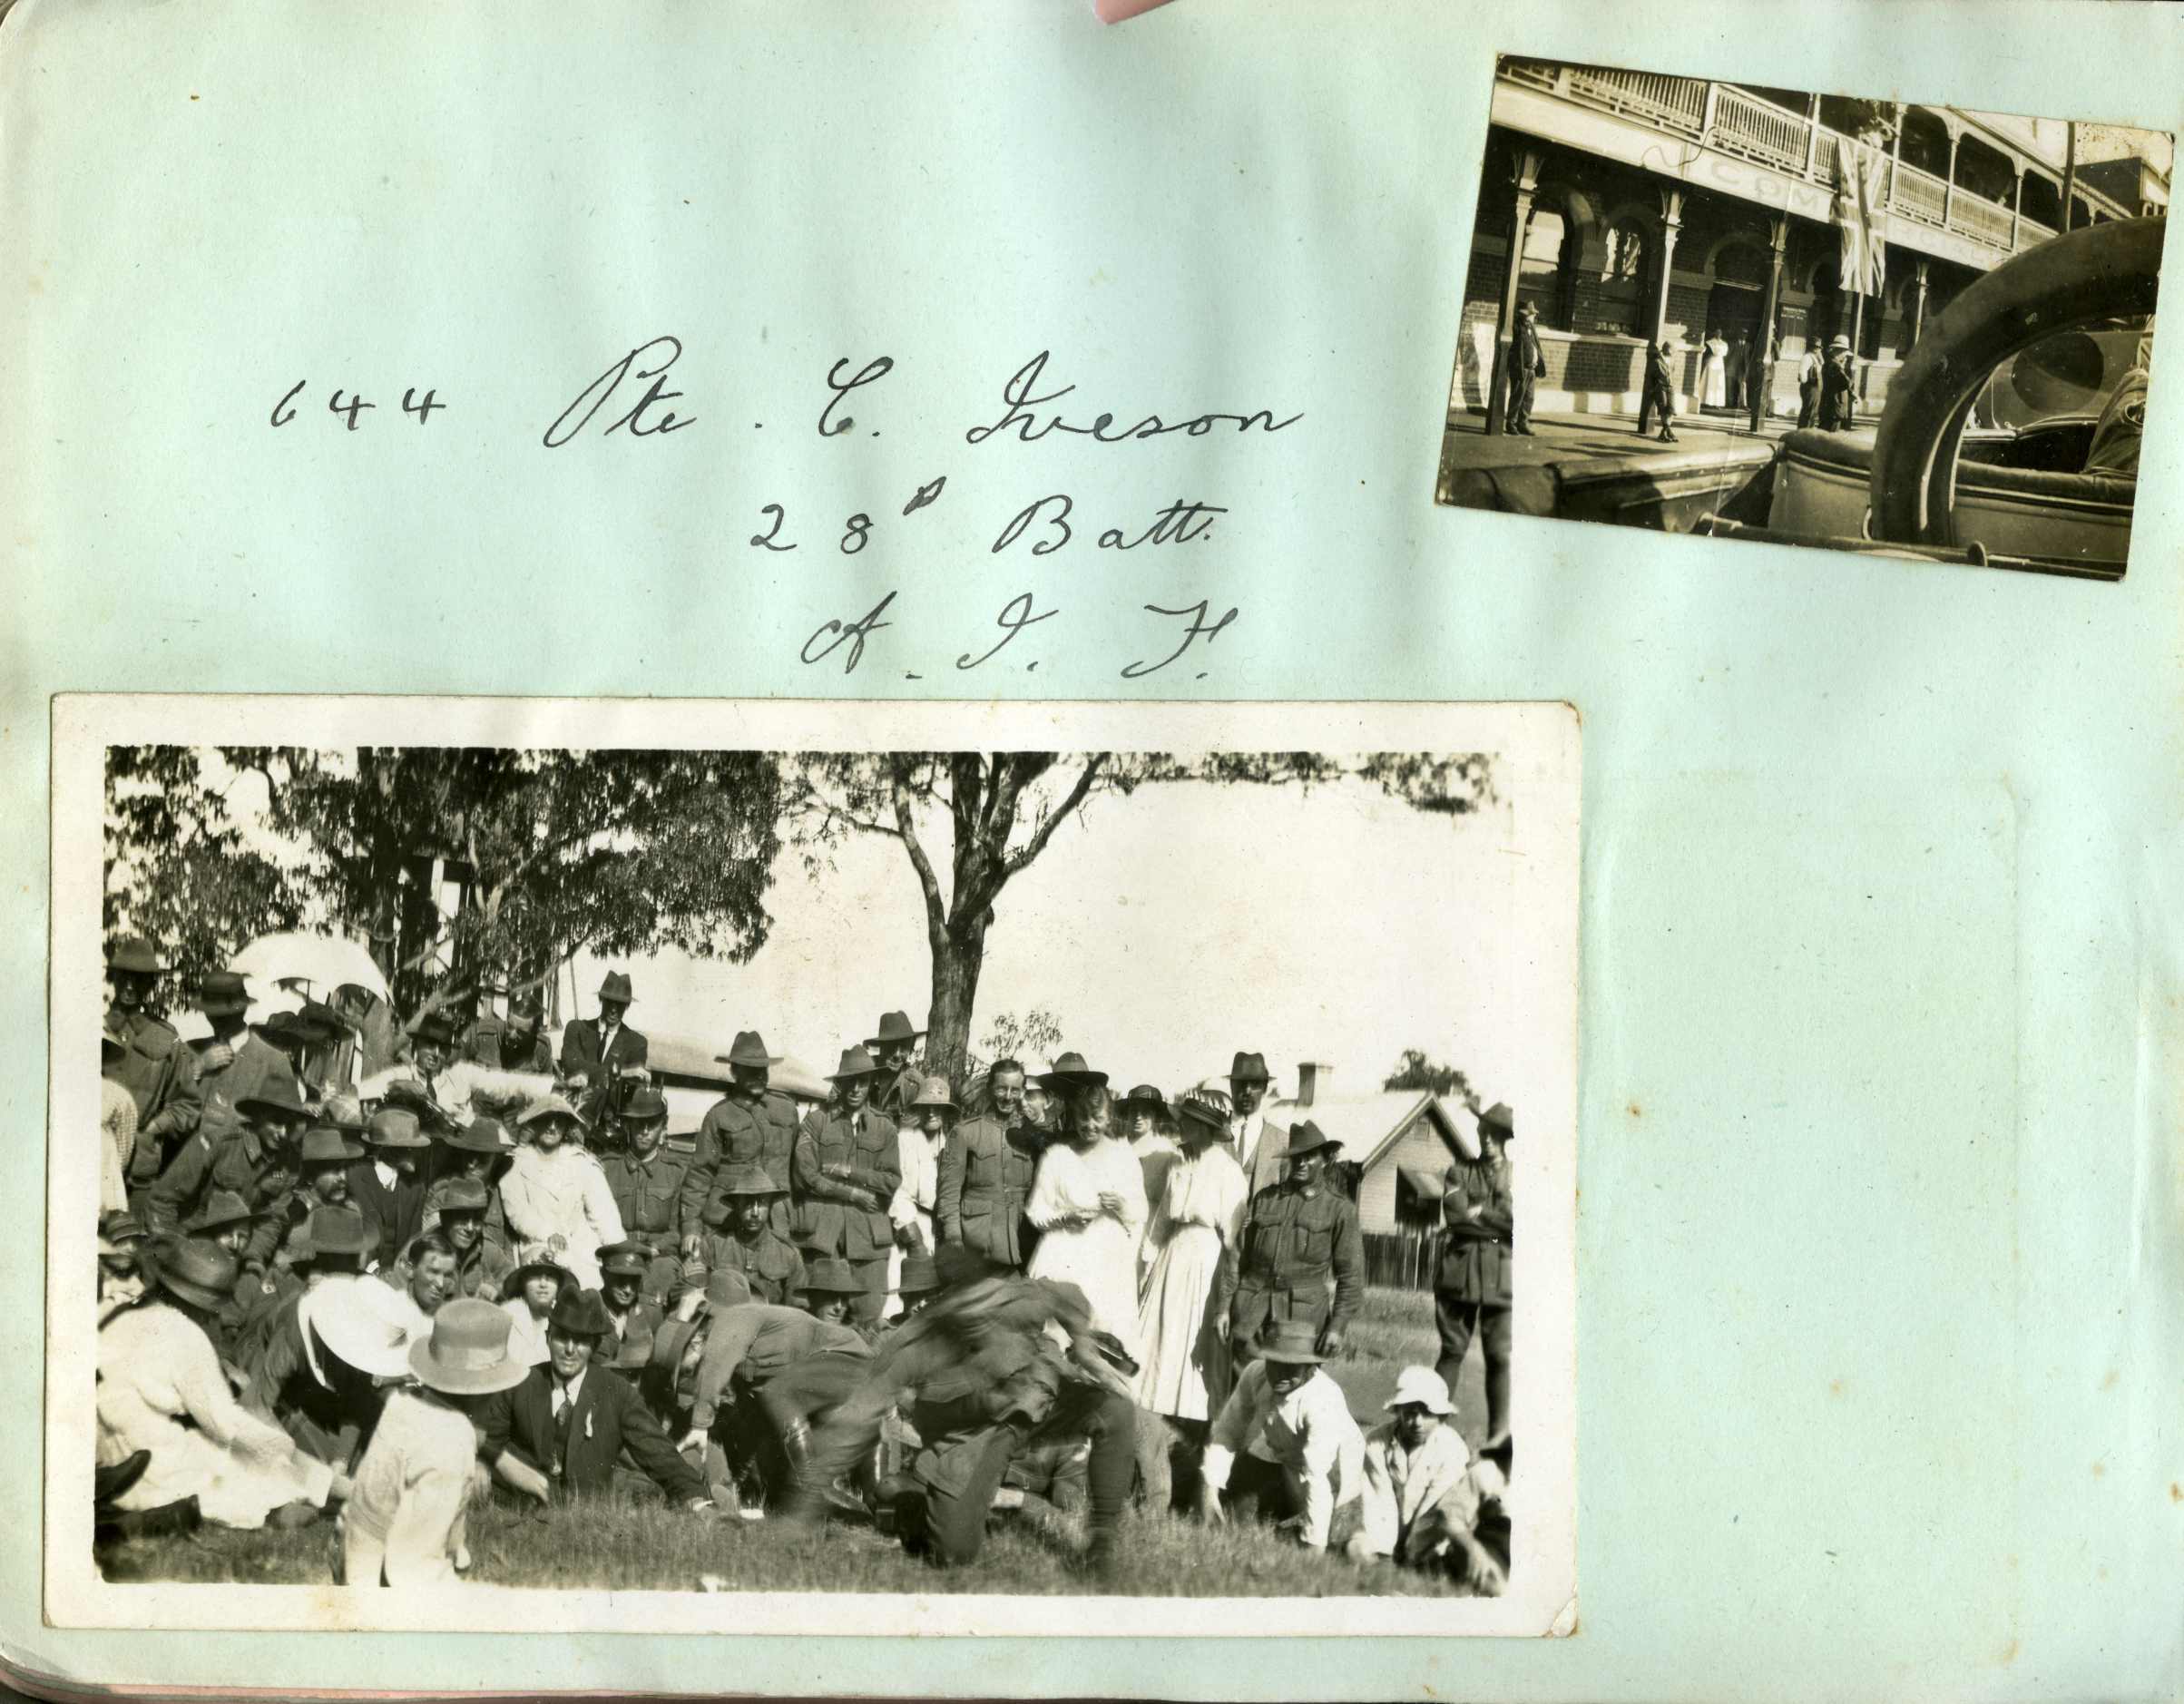 644 Pte. C. Iveson
28th Batt.
A. I. F.
COM